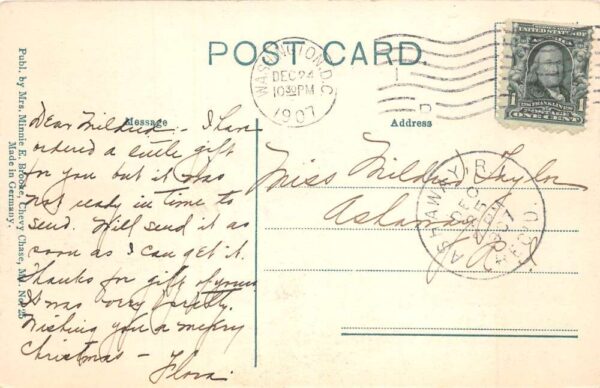 POST CARD.
WASHINGTON, D.C.
DEC 24
10 30 PM
1907
1
D
UNITED STATES OF
FRANKLIN
1 1
ONE CENT
Message
Address
Dear Mildred - I have
ordered a little gift
for you but it was
not ready in time to
send. Will send it as
soon as I can get it.
Thanks for gift of yours
It was very pretty.
Wishing you a merry
Christmas -
Flora.
Miss Mildred Taylor
Ashaway
R.I.
ASHAWAY, R
DEC
25
1907
REC'D
Publ. by Mrs. Minnie E. Brooke, Chevy Chase, Md. No. 25
Made in Germany.